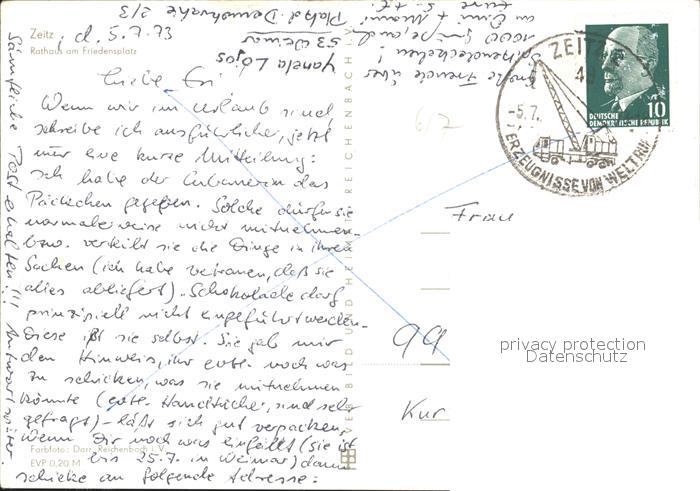 Zeitz
Rathaus am Friedensplatz
, d. 5.7.73
Liebe Eri
Wenn wir im Urlaub sind,
schreibe ich ausführlicher, jetzt
nur eine kurze Mitteilung:
Ich habe der Cubanerin das
Päckchen gegeben. Solche dürfen sie
normalerweise nicht mitnehmen
bzw. verteilt sie die Dinge in ihren
Sachen (ich habe vertrauen, daß sie
alles abliefert). Schokolade darf
prinzipiell nicht eingeführt werden.
Diese ißt sie selbst. Sie gab mir
den Hinweis, ihr evtl. noch was
zu schicken, was sie mitnehmen
könnte (evtl. Handtücher, sind sehr
gefragt) - läßt sich gut verpacken,
Wenn Dir noch was einfällt (sie ist
bis 25.7. in Weimar) dann
schicke an folgende Adresse:
Farbfoto: Darr, Reichenbach i. V.
EVP 0,20 M
Sämtliche Post erhalten!!! Antwort später
53 Weimar
Platz d. Demokratie 2/3
Große Freude über
1000
BILD UND HEIMAT REICHENBACH
ZEITZ
49
-5.7.
ERZEUGNISSE VON WELTRUF
DEUTSCHE
DEMOKRATISCHE REPUBLIK
10
6/7
Frau
99
Kur
privacy protection
Datenschutz